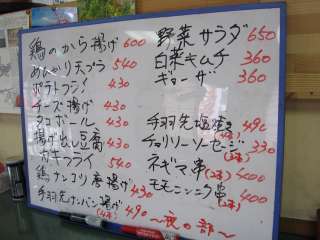 鶏のから揚げ 600
めんたい天プラ 540
ポテトフライ 430
チーズ揚げ 430
タコボール 430
揚げ出し豆腐 430
カキフライ 540
鶏ナンコツ唐揚げ 430
手羽先ナンバン揚げ (4本) 490
野菜サラダ 650
白菜キムチ 360
ギョーザ 360
手羽先塩焼き (4本) 490
チョリソーソーセージ (3本) 330
ネギマ串 (2本) 400
モモニンニク串 (2本) 400
〜夜の部〜